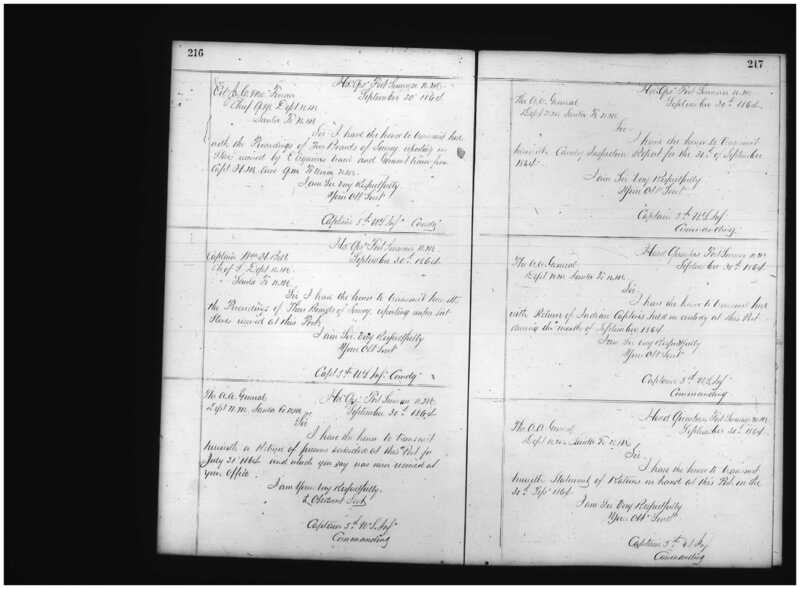 216
Hd Qrs Fort Sumner N.M.
September 30th 1864.
Chief Q.M. Dept N.M.
Santa Fe N.M.
Sir I have the honor to transmit here
with the Proceedings of Boards of Survey reporting on
Stores received by train and train from
Capt
I am Sir Very Respectfully
Your Obt Servt
Captain 5th U.S. Inf Comdg
Hd Qrs Fort Sumner N.M.
September 30th 1864.
Captain Wm H. Bell
Chief S. Dept N.M.
Santa Fe N.M.
Sir I have the honor to transmit herewith
the Proceedings of Three Boards of Survey, reporting upon
Stores received at this Post,
I am Sir Very Respectfully
Your Obt Servt
Capt 5th U.S. Inf Comdg
The A.A. General
Hd Qrs Fort Sumner N.M.
Dept N.M. Santa Fe N.M.
September 30th 1864.
Sir
I have the honor to transmit
herewith a Return of at this Post for
July 31st 1864 and which you say was never received at
your Office
I am Yours Very Respectfully.
& Obedient Servt
Captain 5th U.S. Inf
Commanding
217
Hd Qrs Fort Sumner N.M.
September 30th 1864.
The A.A. General
Dept N.M. Santa Fe N.M.
Sir
I have the honor to transmit
herewith Cavalry Inspection Report for the 31st of September
1864.
I am Sir Very Respectfully
Your Obt Servt
Captain 5th U.S. Inf
Commanding
Head Quarters Fort Sumner N.M.
September 30th 1864.
The A.A. General
Dept N.M. Santa Fe N.M.
Sir
I have the honor to transmit here
with Return of Indian Captives held in custody at this Post
during the month of September 1864.
I am Sir Very Respectfully
Your Obt Servt
Captain 5th U.S. Inf
Commanding
Head Quarters Fort Sumner N.M.
September 30th 1864.
The A.A. General
Dept N.M. Santa Fe N.M.
Sir
I have the honor to transmit
herewith Statement of Rations on hand at this Post on the
31st Sept 1864.
I am Sir Very Respectfully
Your Obt Servt
Captain 5th U.S. Inf
Commanding